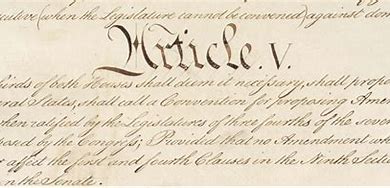 cutive (when the Legislature cannot be convened) against dom
Article. V.
hirds of both Houses shall deem it necessary, shall propo
eral States, shall call a Convention for proposing Amen
when ratified by the Legislatures of three fourths of the sever
posed by the Congress; Provided that no Amendment whi
r affect the first and fourth Clauses in the Ninth Secti
in the Senate.